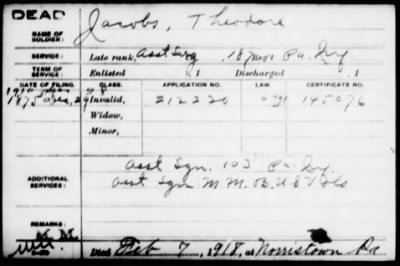 DEAD
Jacobs, Theodore
NAME OF SOLDIER:
SERVICE: Late rank, Asst Surg, 187 Reg't Pa. Inf
TERM OF SERVICE: Enlisted , 1 Discharged , 1
DATE OF FILING. CLASS. APPLICATION NO. LAW CERTIFICATE NO.
1875 Dec, 29 Invalid, 212220 145076
Widow,
Minor,
ADDITIONAL SERVICES:
Asst Sgn. 103 Pa. Inf
Asst Sgn M.M.B. U S Vols
REMARKS:
Died Feb 7, 1918, at Norristown Pa